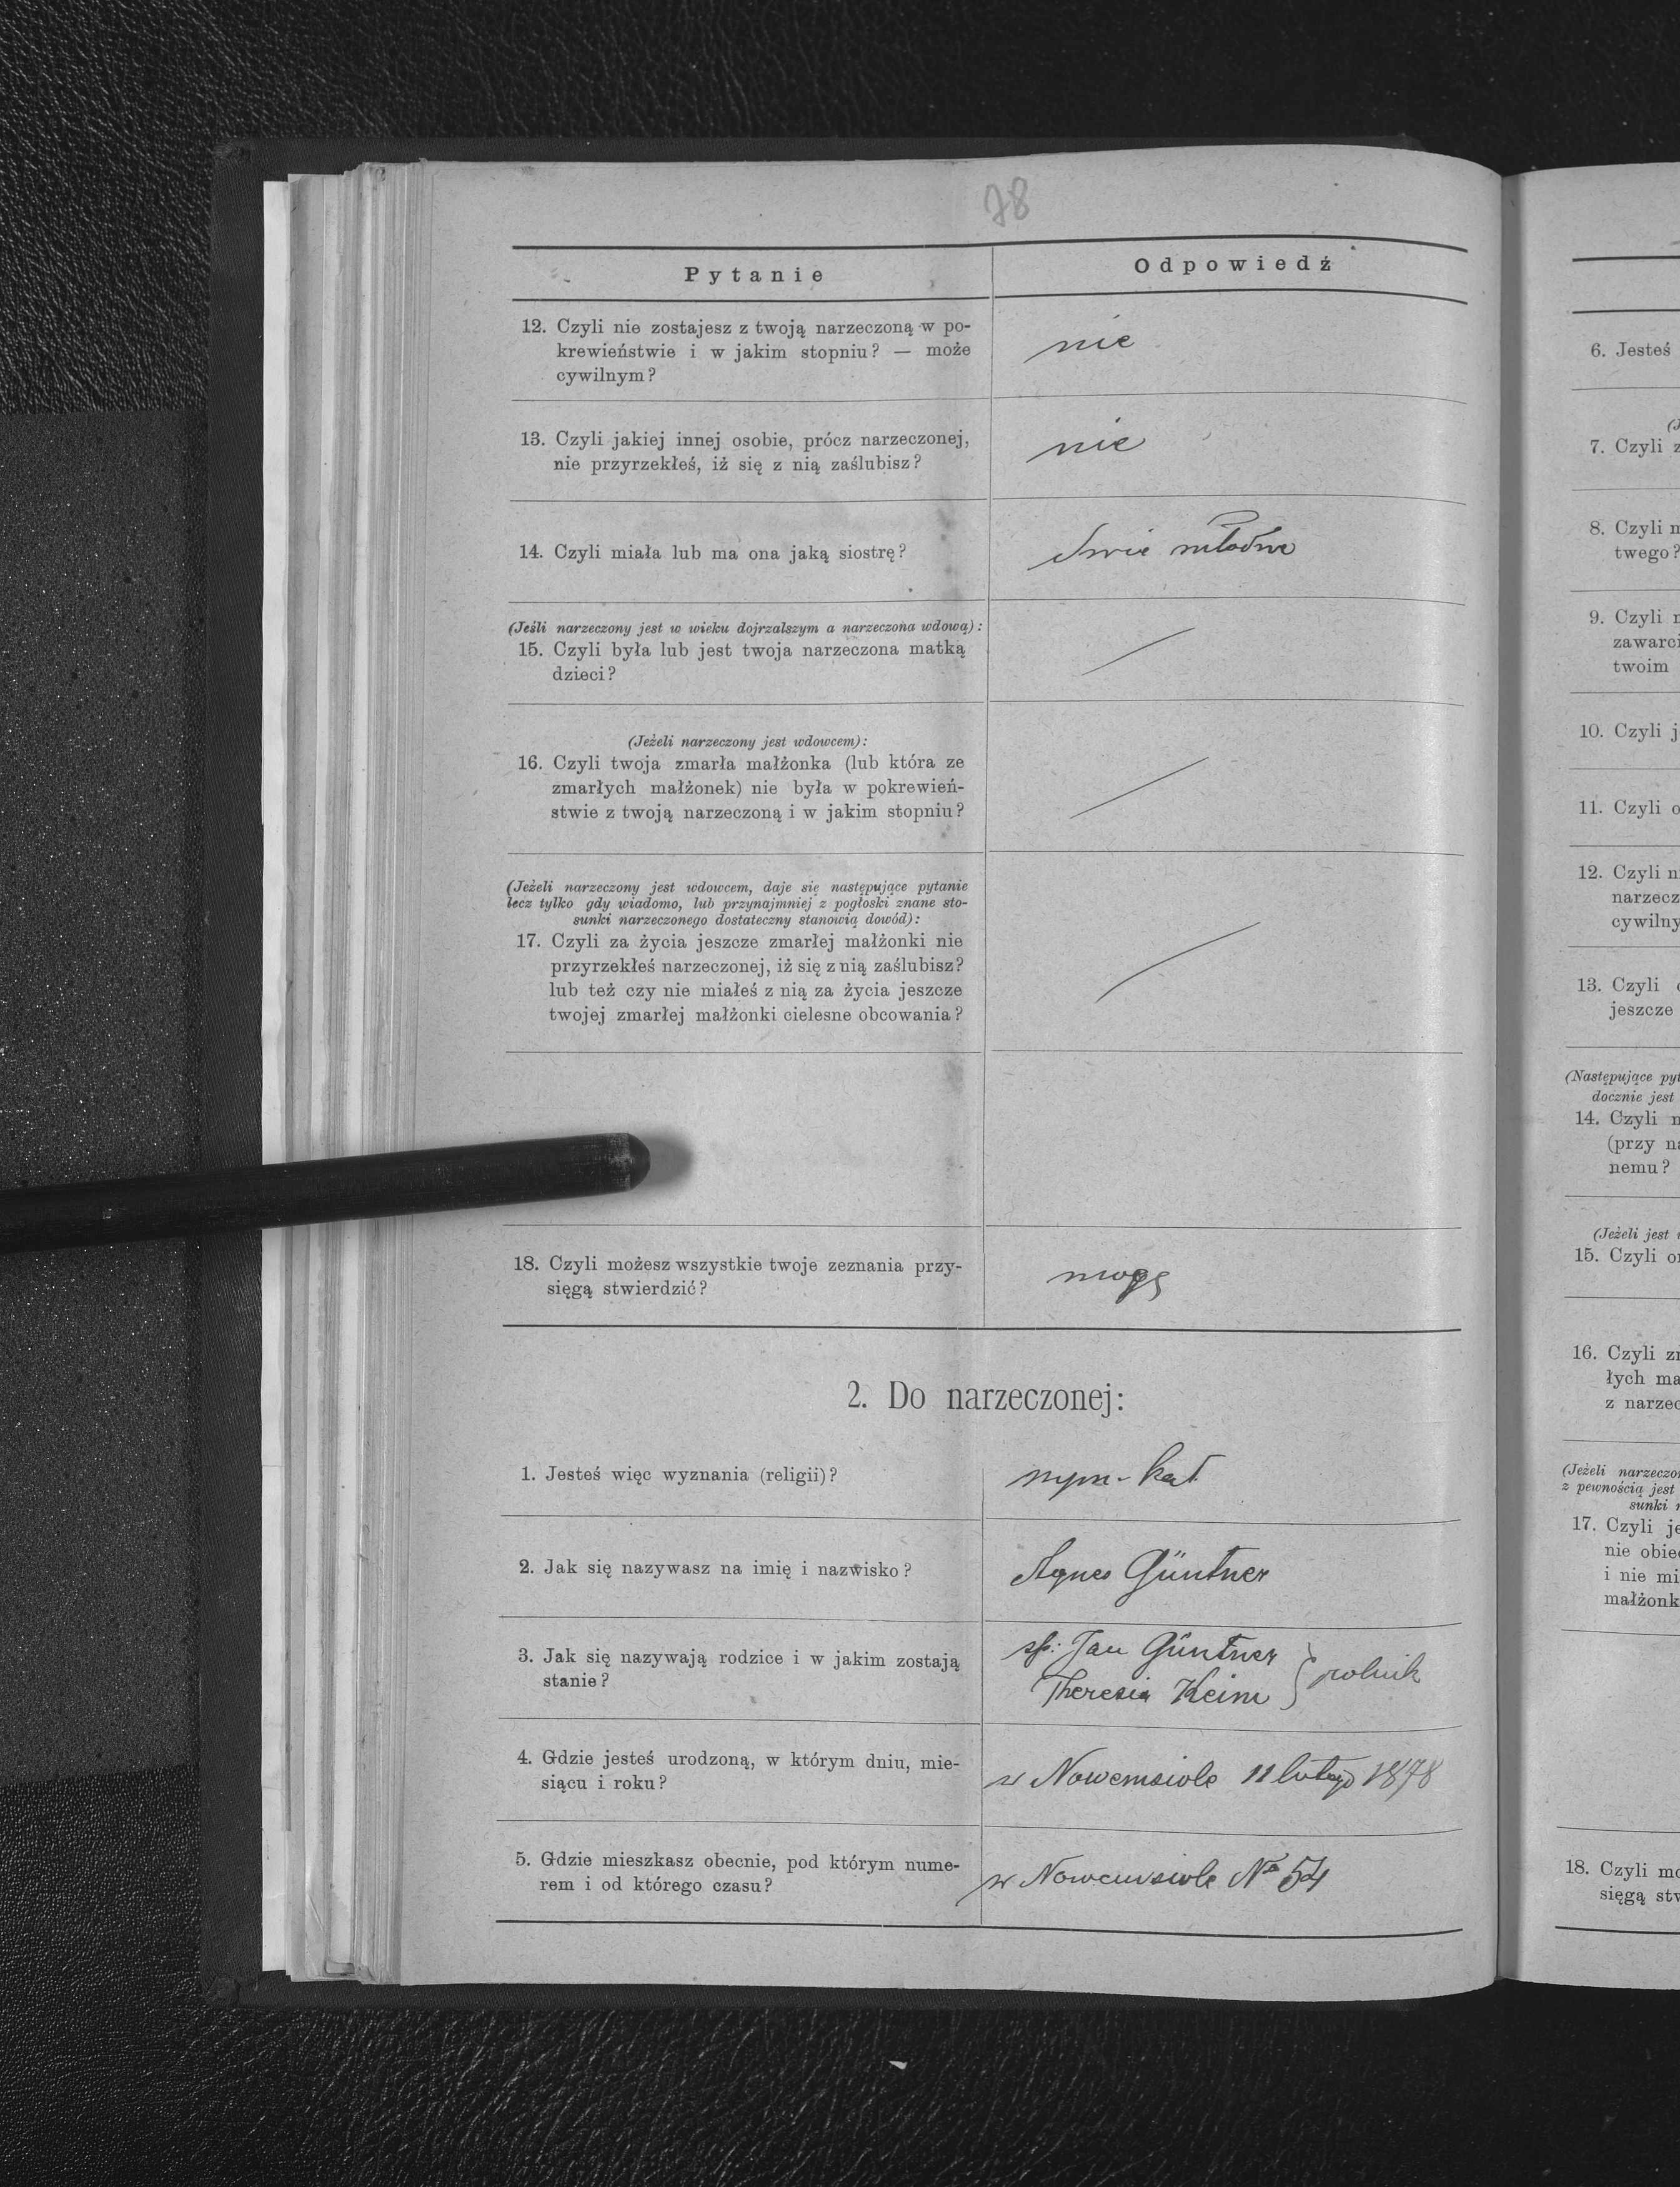 78
Pytanie
Odpowiedź
12. Czyli nie zostajesz z twoją narzeczoną w po-
krewieństwie i w jakim stopniu? — może
cywilnym?
nie
13. Czyli jakiej innej osobie, prócz narzeczonej,
nie przyrzekłeś, iż się z nią zaślubisz?
nie
14. Czyli miała lub ma ona jaką siostrę?
(Jeśli narzeczony jest w wieku dojrzalszym a narzeczona wdową):
15. Czyli była lub jest twoja narzeczona matką
dzieci?
(Jeżeli narzeczony jest wdowcem):
16. Czyli twoja zmarła małżonka (lub która ze
zmarłych małżonek) nie była w pokrewień-
stwie z twoją narzeczoną i w jakim stopniu?
(Jeżeli narzeczony jest wdowcem, daje się następujące pytanie
lecz tylko gdy wiadomo, lub przynajmniej z pogłoski znane sto-
sunki narzeczonego dostateczny stanowią dowód):
17. Czyli za życia jeszcze zmarłej małżonki nie
przyrzekłeś narzeczonej, iż się z nią zaślubisz?
lub też czy nie miałeś z nią za życia jeszcze
twojej zmarłej małżonki cielesne obcowania?
18. Czyli możesz wszystkie twoje zeznania przy-
sięgą stwierdzić?
mogę
2. Do narzeczonej:
1. Jesteś więc wyznania (religii)?
rzym-kat
2. Jak się nazywasz na imię i nazwisko?
Agnes Güntner
3. Jak się nazywają rodzice i w jakim zostają
stanie?
Jan Güntner
Theresia Keim } rolnik
4. Gdzie jesteś urodzoną, w którym dniu, mie-
siącu i roku?
w Nowemsiole 11 lutego 1878
5. Gdzie mieszkasz obecnie, pod którym nume-
rem i od którego czasu?
w Nowemsiole No 54
6. Jesteś
7. Czyli z
8. Czyli
twego?
9. Czyli
zawarci
twoim
10. Czyli j
11. Czyli o
12. Czyli
narzecz
cywilny
13. Czyli
jeszcze
(Następujące pyt
docznie jest
14. Czyli
(przy na
nemu?
(Jeżeli jest
15. Czyli
16. Czyli
łych ma
z narzec
(Jeżeli narzeczon
z pewnością jest
sunki
17. Czyli je
nie obiec
i nie mi
małżonk
18. Czyli mo
sięgą stw